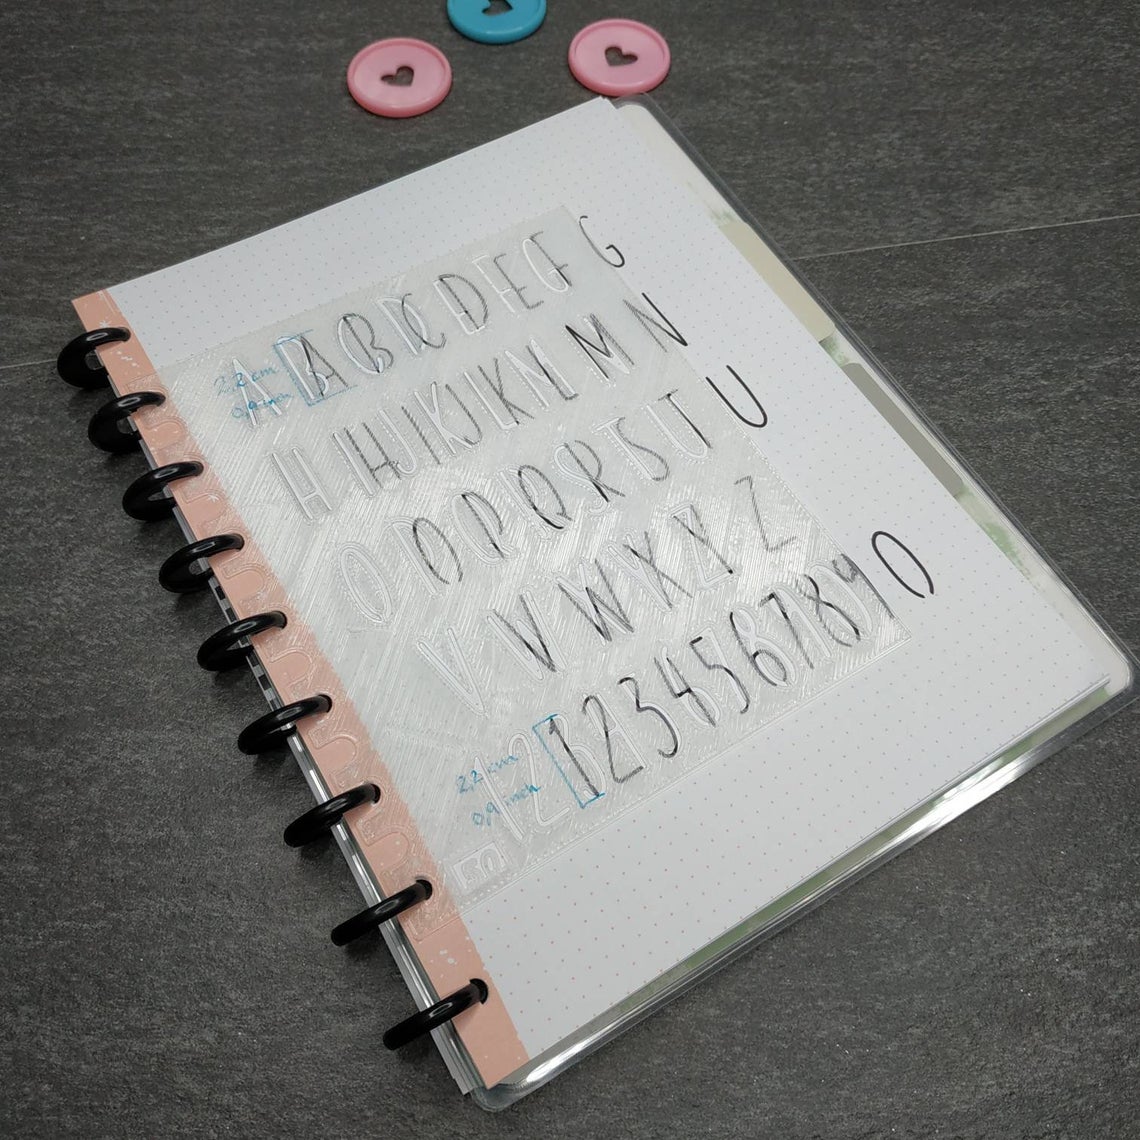 2,2 cm
0,9 inch
A B C D E F G
H I J K L M N
O P Q R S T U
V W X Y Z
2,2 cm
0,9 inch
1 2 3 4 5 6 7 8 9 0